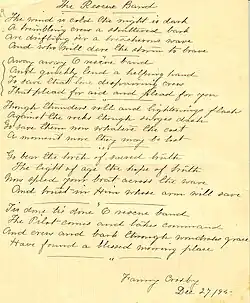 The Rescue Band
The wind is cold the night is dark
A trembling crew a shattered bark
Are drifting o'er a treacherous wave
And who will dare the storm to brave
Away away O rescue band
And quickly lend a helping hand
To save that lone despairing crew
That plead for aid and plead for you
Though thunders roll and lightnings flash
Against the rocks though surges dash
To save them now whatere the cost
A moment more they may be lost
To bear the torch of sacred truth
The light of age the hope of youth
Now speed your boat across the wave
And trust in Him whose arm will save
Tis done tis done O rescue band
The Pilot comes and takes command
And crew and bark through wondrous grace
Have found a blessed mooring place
Fanny Crosby
Dec 27/98